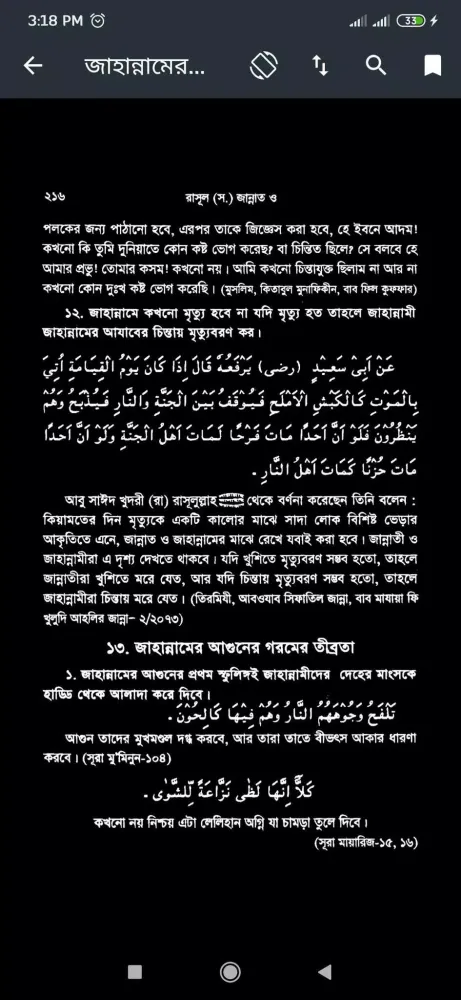 3:18 PM
33
জাহান্নামের...
২১৬
রাসূল (স.) জান্নাত ও
পলকের জন্য পাঠানো হবে, এরপর তাকে জিজ্ঞেস করা হবে, হে ইবনে আদম!
কখনো কি তুমি দুনিয়াতে কোন কষ্ট ভোগ করেছ? বা চিন্তিত ছিলে? সে বলবে হে
আমার প্রভু! তোমার কসম! কখনো নয়। আমি কখনো চিন্তাযুক্ত ছিলাম না আর না
কখনো কোন দুঃখ কষ্ট ভোগ করেছি। (মুসলিম, কিতাবুল মুনাফিকীন, বাব ফিল কুফফার)
১২. জাহান্নামে কখনো মৃত্যু হবে না যদি মৃত্যু হত তাহলে জাহান্নামী
জাহান্নামের আযাবের চিন্তায় মৃত্যুবরণ কর।
عَنْ اَبِىْ سَعِيْدٍ (رضى) يَرْفَعُهُ قَالَ اِذَا كَانَ يَوْمُ الْقِيَامَةِ اُتِيَ
بِالْمَوْتِ كَالْكَبْشِ الْاَمْلَحِ فَيُوْقَفُ بَيْنَ الْجَنَّةِ وَالنَّارِ فَيُذْبَحُ وَهُمْ
يَنْظُرُوْنَ فَلَوْ اَنَّ اَحَدًا مَاتَ فَرْحًا لَمَاتَ اَهْلُ الْجَنَّةِ وَلَوْ اَنَّ اَحَدًا
مَاتَ حُزْنًا كَمَاتَ اَهْلُ النَّارِ .
আবু সাঈদ খুদরী (রা) রাসূলুল্লাহ থেকে বর্ণনা করেছেন তিনি বলেন :
কিয়ামতের দিন মৃত্যুকে একটি কালোর মাঝে সাদা লোক বিশিষ্ট ভেড়ার
আকৃতিতে এনে, জান্নাত ও জাহান্নামের মাঝে রেখে যবাই করা হবে। জান্নাতী ও
জাহান্নামীরা এ দৃশ্য দেখতে থাকবে। যদি খুশিতে মৃত্যুবরণ সম্ভব হতো, তাহলে
জান্নাতীরা খুশিতে মরে যেত, আর যদি চিন্তায় মৃত্যুবরণ সম্ভব হতো, তাহলে
জাহান্নামীরা চিন্তায় মরে যেত। (তিরমিযী, আবওযাব সিফাতিল জান্না, বাব মাযায়া ফি
খুলুদি আহলির জান্না- ২/২০৭৩)
১৩. জাহান্নামের আগুনের গরমের তীব্রতা
১. জাহান্নামের আগুনের প্রথম স্ফুলিঙ্গই জাহান্নামীদের দেহের মাংসকে
হাড্ডি থেকে আলাদা করে দিবে।
تَلْفَحُ وُجُوْهَهُمُ النَّارُ وَهُمْ فِيْهَا كَالِحُوْنَ .
আগুন তাদের মুখমণ্ডল দগ্ধ করবে, আর তারা তাতে বীভৎস আকার ধারণা
করবে। (সূরা মু'মিনুন-১০৪)
كَلَّا اِنَّهَا لَظٰى نَزَّاعَةً لِّلشَّوٰى .
কখনো নয় নিশ্চয় এটা লেলিহান অগ্নি যা চামড়া তুলে দিবে।
(সূরা মায়ারিজ-১৫, ১৬)